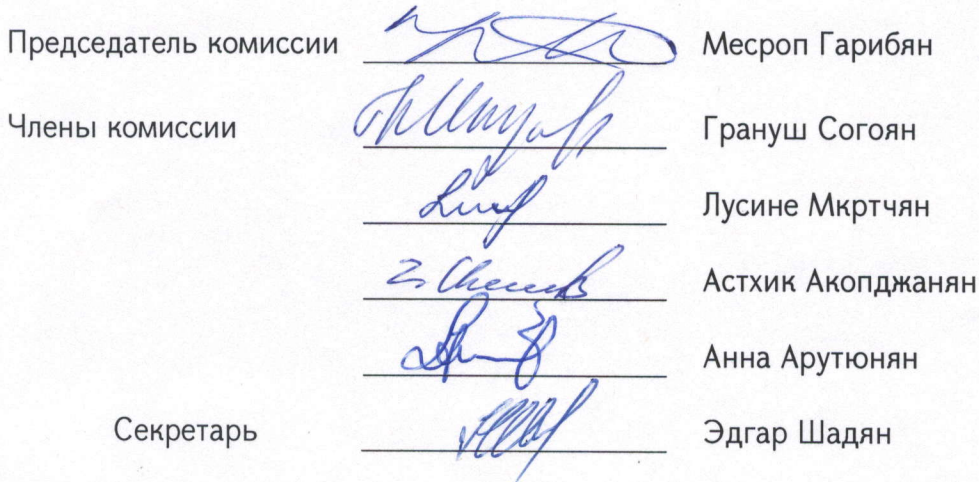 Председатель комиссии Месроп Гарибян
Члены комиссии Грануш Согоян
Лусине Мкртчян
Астхик Акопджанян
Анна Арутюнян
Секретарь Эдгар Шадян